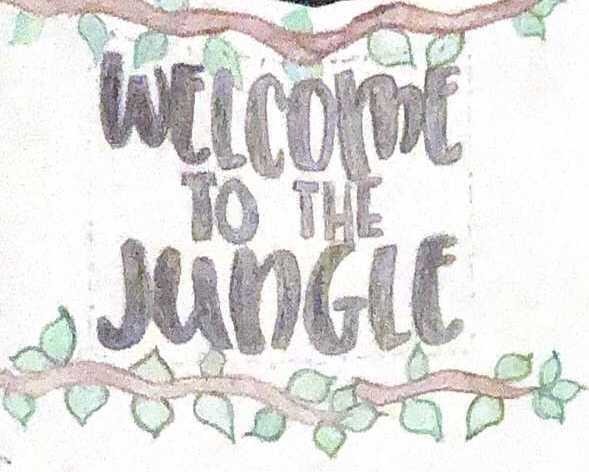 WELCOME
TO THE
JUNGLE